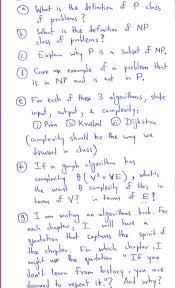 (a) What is the definition of P class
of problems?
(b) What is the definition of NP
class of problems?
(c) Explain why P is a subset of NP.
(d) Give an example of a problem that
is in NP and is not in P.
(e) For each of these 3 algorithms, state
input, output, & complexity:
(i) Prim (ii) Kruskal (iii) Dijkstra
(complexity should be the way we
discussed in class)
(f) If a graph algorithm has
complexity θ(V²+VE), what's
the worst θ complexity of this in
terms of V? in terms of E?
(g) I am writing an algorithms book. For
each chapter, I will have a
quotation that captures the spirit of
the chapter. In which chapter, I
might use the quotation "If you
don't learn from history, you are
doomed to repeat it."? And why?